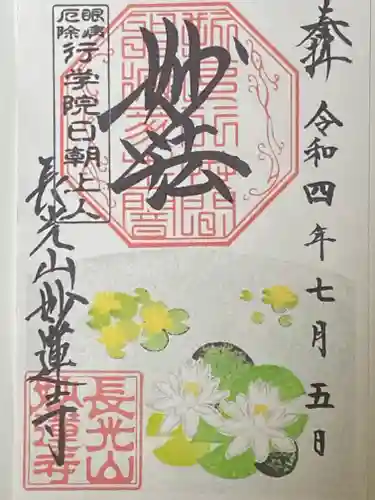 奉拝
令和四年七月五日
妙法
眼病
厄除
行学院日朝上人
長光山妙蓮寺
長光山
妙蓮寺